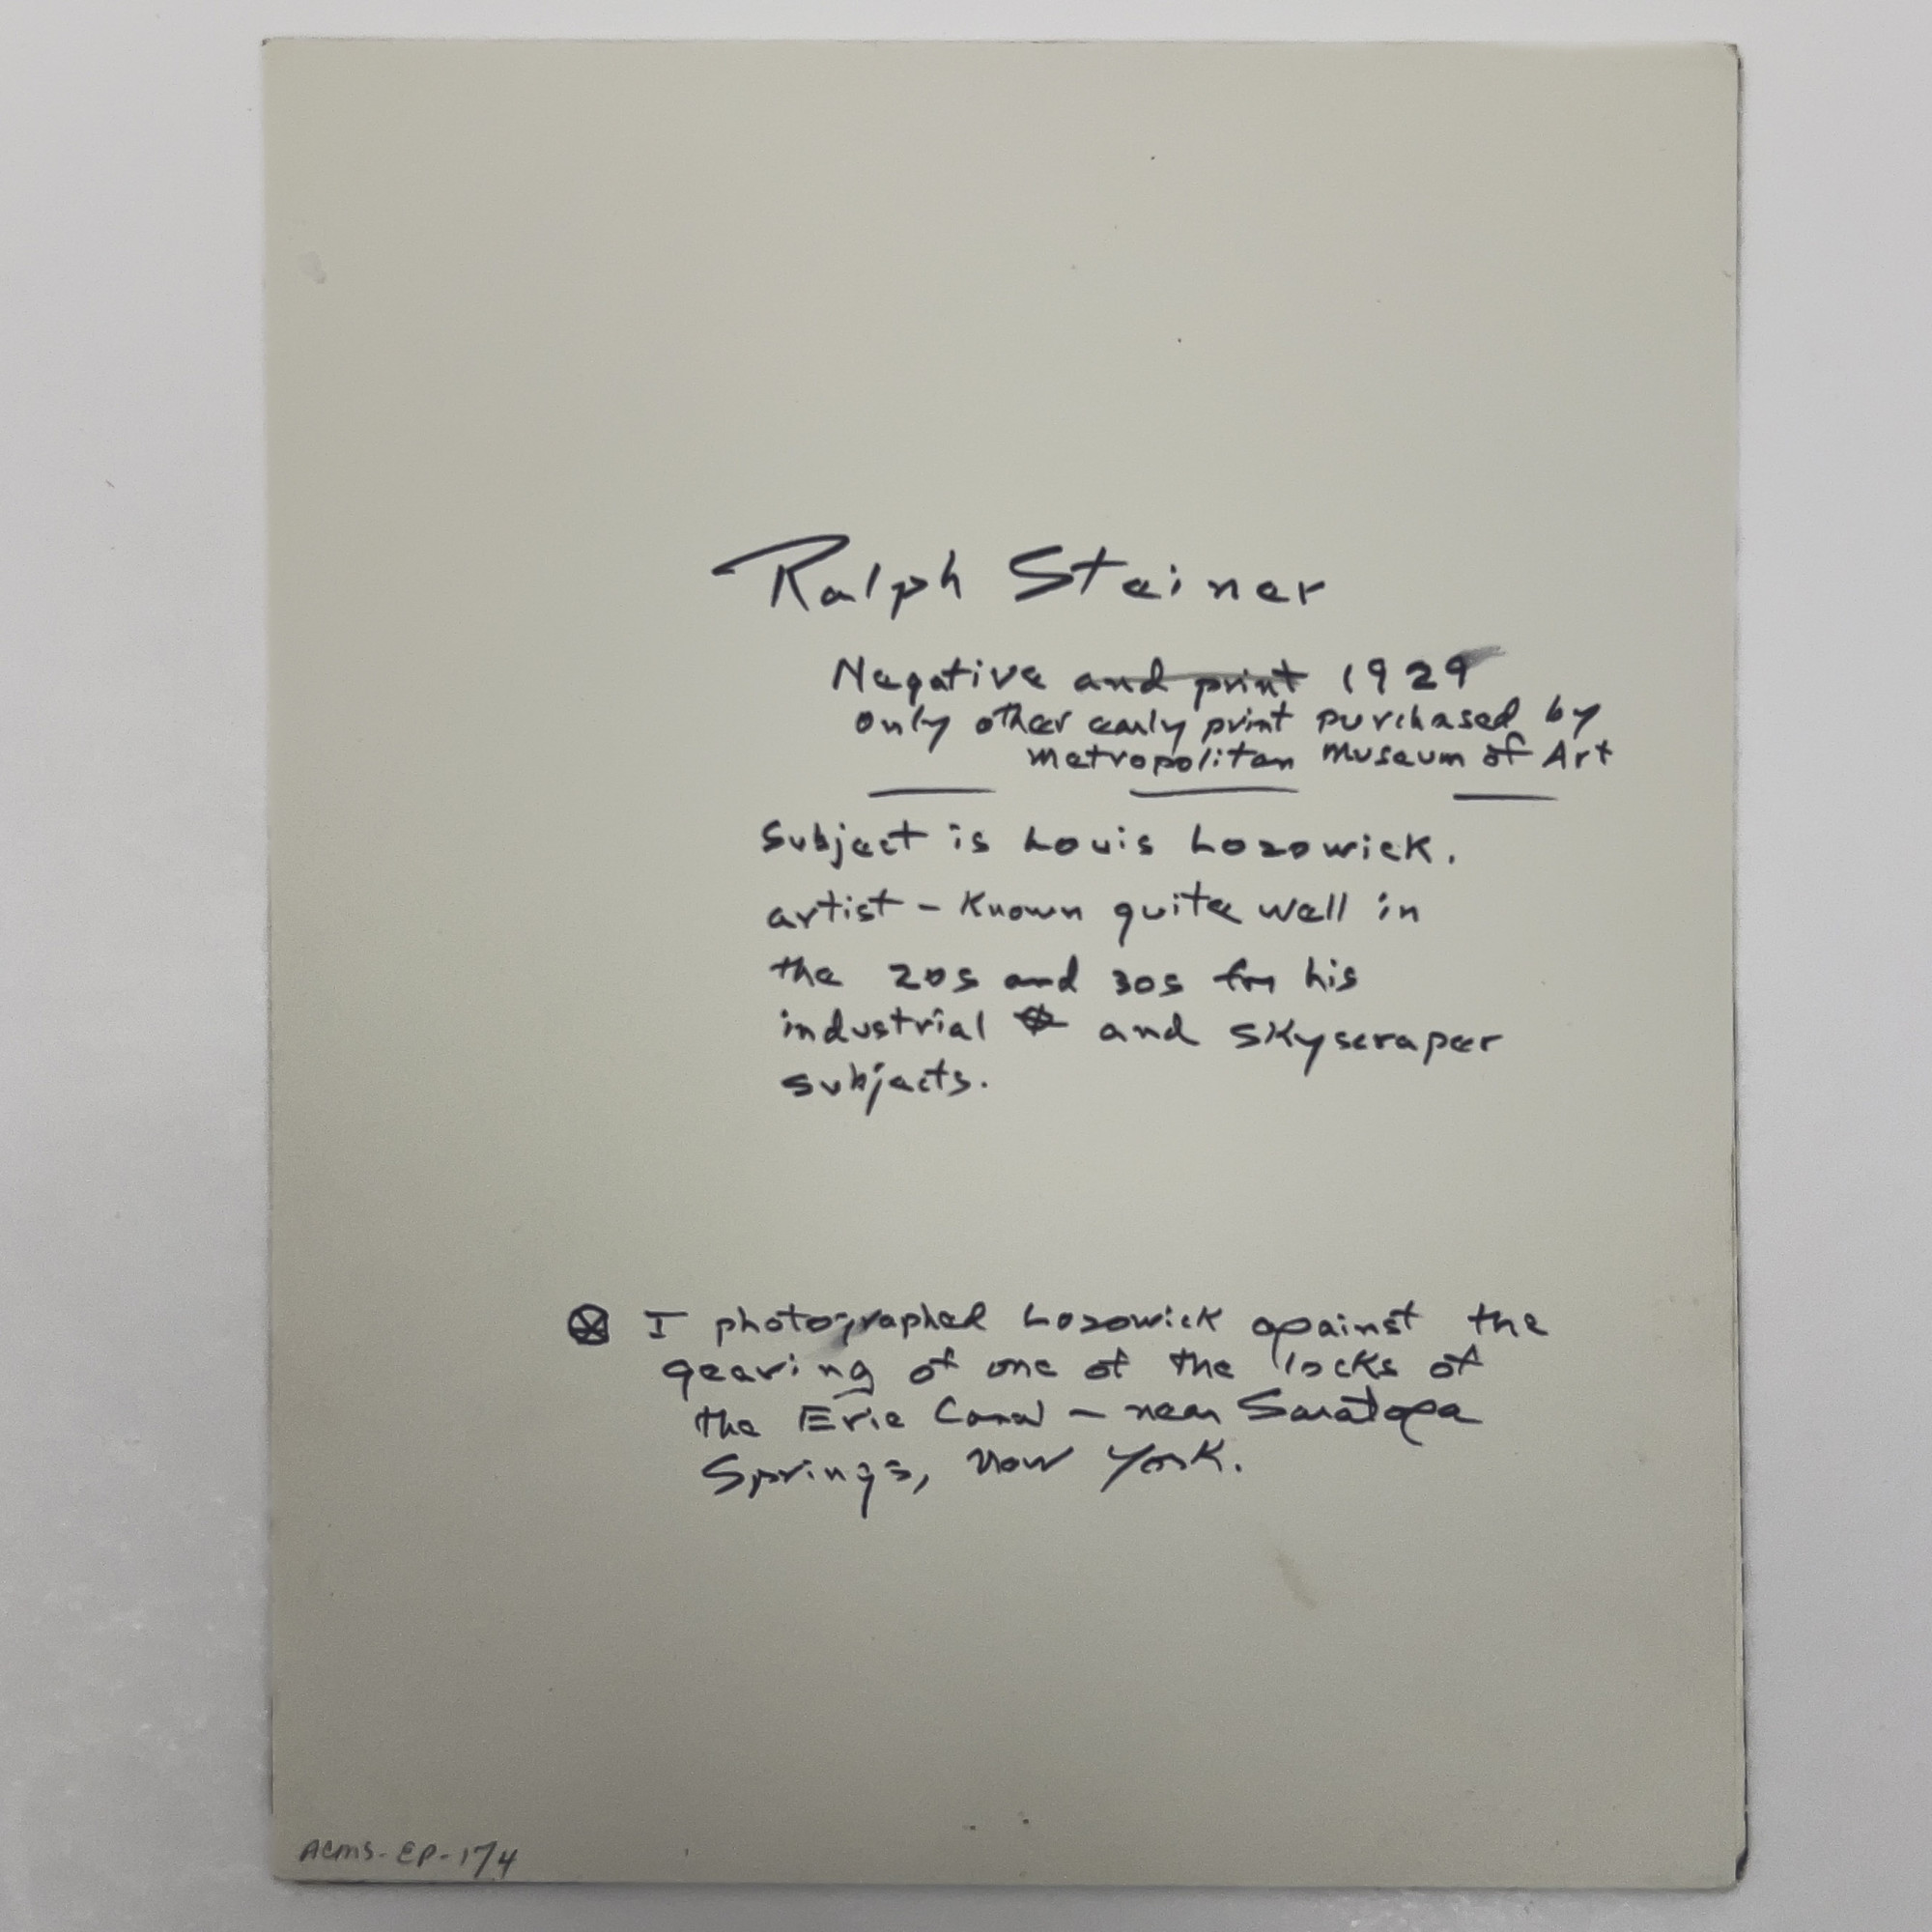 Ralph Steiner
Negative and print 1929
only other early print purchased by
Metropolitan Museum of Art
Subject is Louis Lozowick.
artist - Known quite well in
the 20s and 30s for his
industrial ⊗ and skyscraper
subjects.
⊗ I photographed Lozowick against the
gearing of one of the locks of
the Erie Canal - near Saratoga
Springs, New York.
ACMS-EP-174